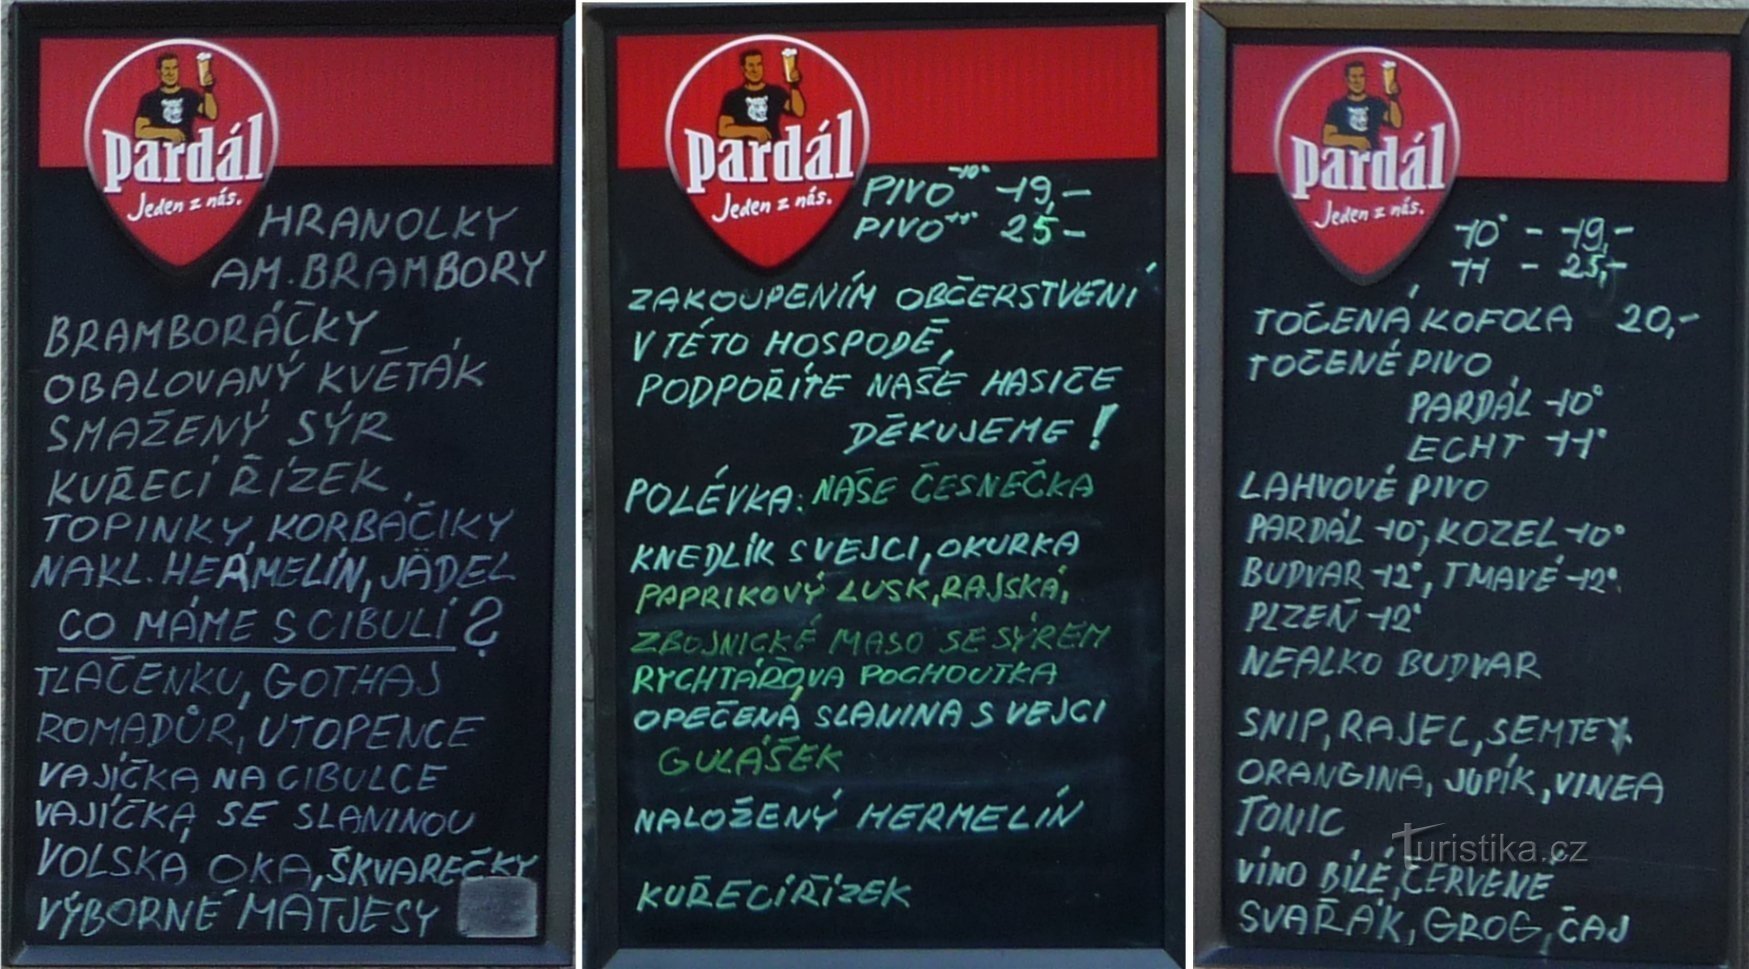 pardál
Jeden z nás.
HRANOLKY
AM. BRAMBORY
BRAMBORÁČKY
OBALOVANÝ KVĚTÁK
SMAŽENÝ SÝR
KUŘECÍ ŘÍZEK
TOPINKY, KORBÁČIKY
NAKL. HEŔMELÍN, JÄDEL
CO MÁME S CIBULÍ?
TLAČENKU, GOTHAJ
ROMADŮR, UTOPENCE
VAJÍČKA NA CIBULCE
VAJÍČKA SE SLANINOU
VOLSKÁ OKA, ŠKVAREČKY
VÝBORNÉ MATJESY
pardál
Jeden z nás.
PIVO 10° 19,-
PIVO 11° 25-
ZAKOUPENÍM OBČERSTVENÍ
V TÉTO HOSPODĚ,
PODPOŘÍTE NAŠE HASIČE
DĚKUJEME!
POLÉVKA: NAŠE ČESNEČKA
KNEDLÍK S VEJCI, OKURKA
PAPRIKOVÝ LUSK, RAJSKÁ,
ZBOJNICKÉ MASO SE SÝREM
RYCHTÁŘOVA POCHOUTKA
OPEČENÁ SLANINA S VEJCI
GULÁŠEK
NALOŽENÝ HERMELÍN
KUŘECÍ ŘÍZEK
pardál
Jeden z nás.
10° - 19,-
11 - 25,-
TOČENÁ KOFOLA 20,-
TOČENÉ PIVO
PARDÁL 10°
ECHT 11°
LAHVOVÉ PIVO
PARDÁL 10°, KOZEL 10°
BUDVAR 12°, TMAVÉ 12°
PLZEŇ 12°
NEALKO BUDVAR
SNIP, RAJEC, SEMTEX
ORANGINA, JUPÍK, VINEA
TONIC
VÍNO BÍLÉ, ČERVENÉ
SVAŘÁK, GROG, ČAJ
Turistika.cz